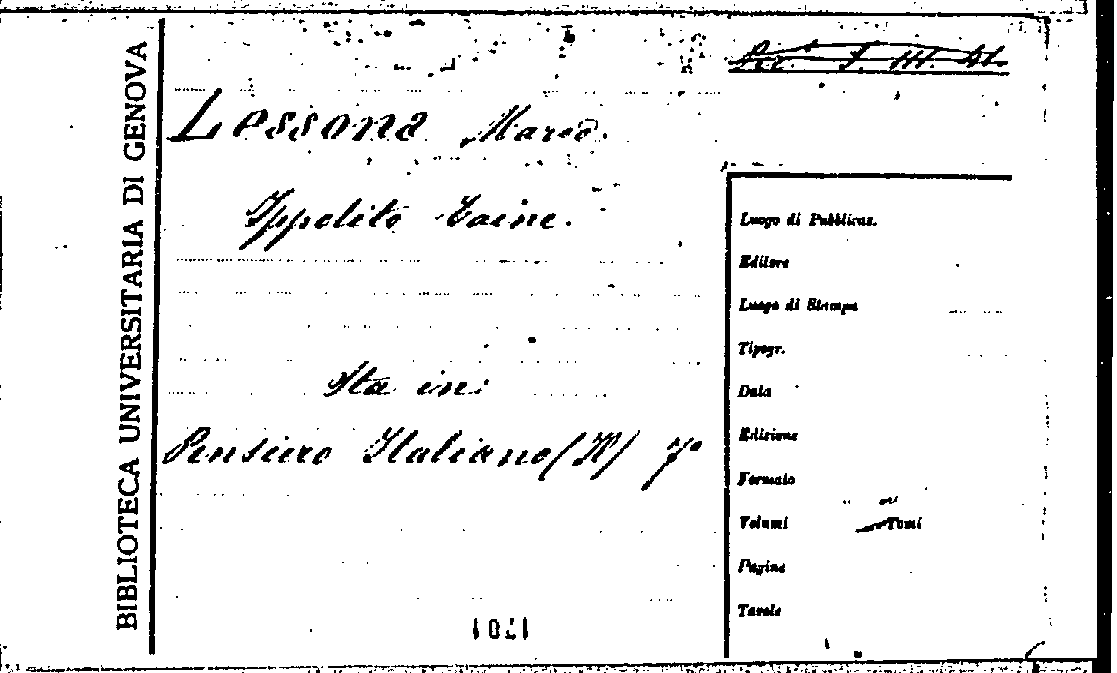 BIBLIOTECA UNIVERSITARIA DI GENOVA
Lessona Mario.
Ippolito Taine.
Sta in:
Pensiero Italiano (Il) 7°
Luogo di Pubblicaz.
Editore
Luogo di Stampa
Tipogr.
Data
Edizione
Formato
Volumi Tomi
Pagine
Tavole